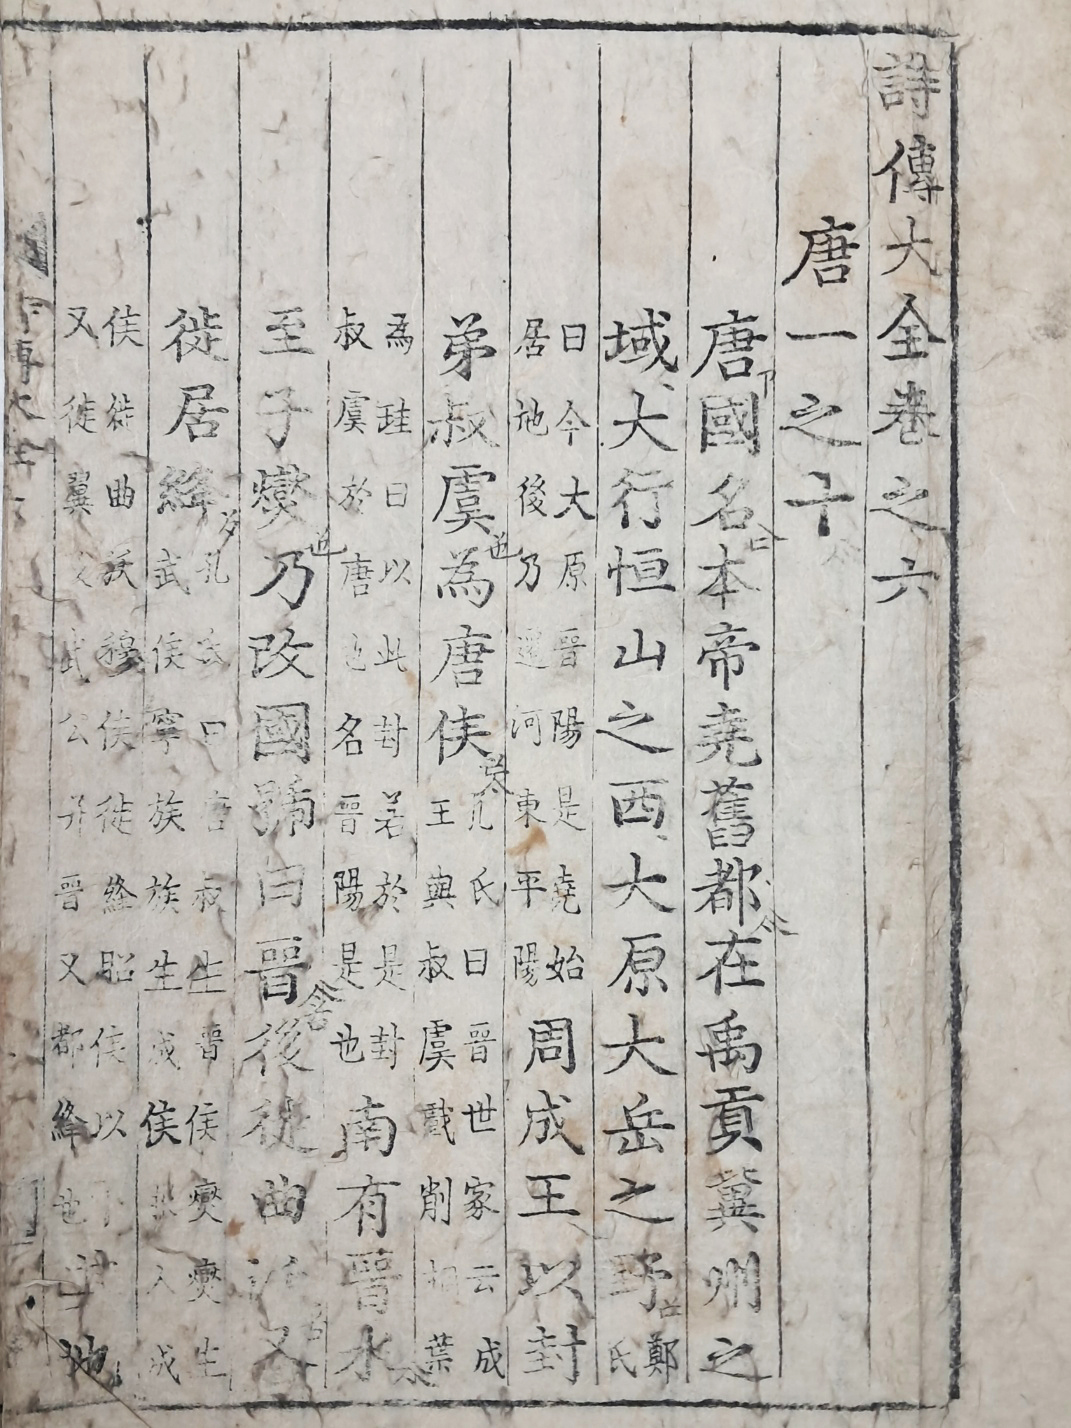 詩傳大全卷之六
唐一之十
唐國名本帝堯舊都在禹貢冀州之
域大行恒山之西大原大岳之野鄭氏
曰今大原晉陽是堯始
居地後乃遷河東平陽
周成王以封
弟叔虞為唐侯
孔氏曰晉世家云成
王與叔虞戱削桐葉
為珪曰以此封若於是封
叔虞於唐也名晉陽是也
南有晉水
至子燮乃改國號曰晉後徙曲沃又
徙居絳
孔氏曰唐叔生晉侯燮燮生
武侯寧族族生成侯服人成
侯徙曲沃穆侯徙絳昭侯以下
又徙翼及武公并晉又都絳也
其地